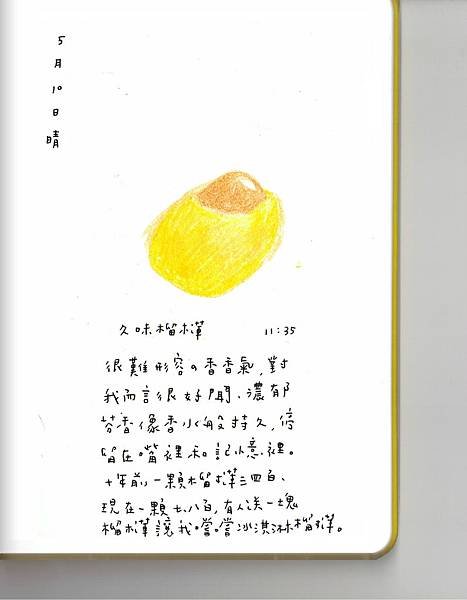 5月10日晴
久味榴槤 11:35
很難形容の香香氣，對
我而言很好聞、濃郁
芬香像香水般持久，停
留在嘴裡和記憶裡。
十年前一顆榴槤三四百、
現在一顆七八百，有人送一塊
榴槤讓我嚐嚐冰淇淋榴槤。